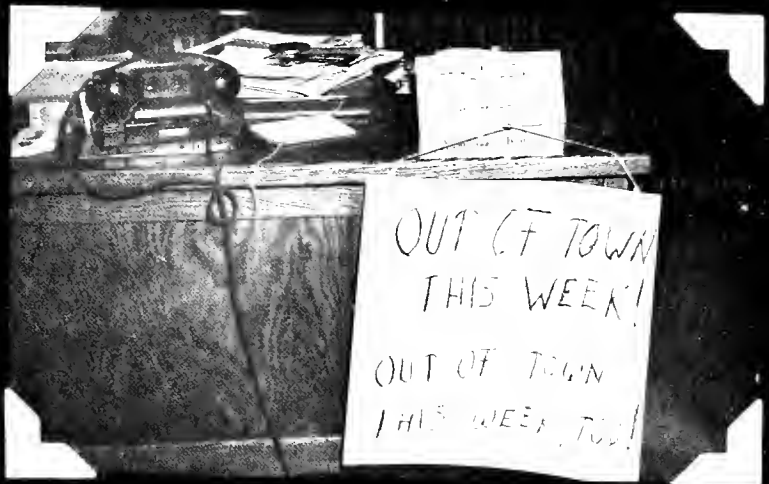 OUT OF TOWN
THIS WEEK!
OUT OF TOWN
THIS WEEK, TOO!